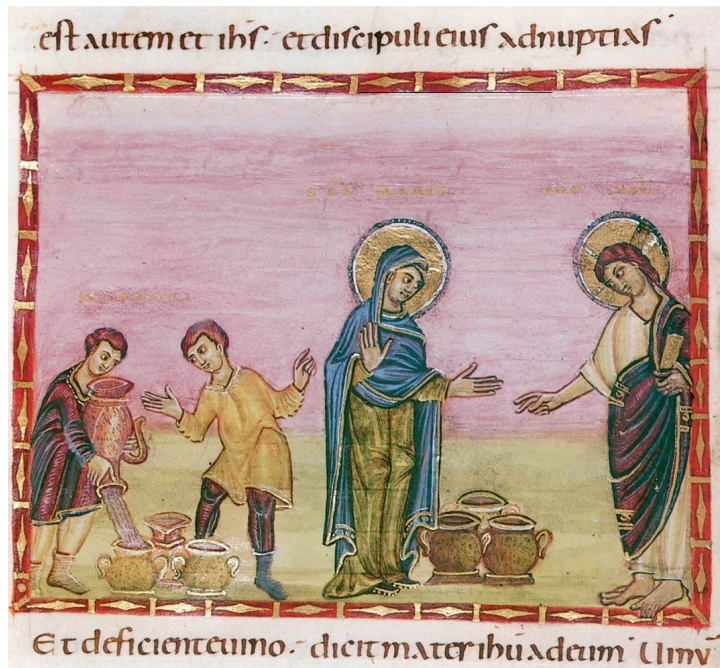 est autem et ihs· et discipuli eius ad nuptias
MARIA
MINISTRI
Et deficiente uino· dicit mater ihu ad eum Uinu̅